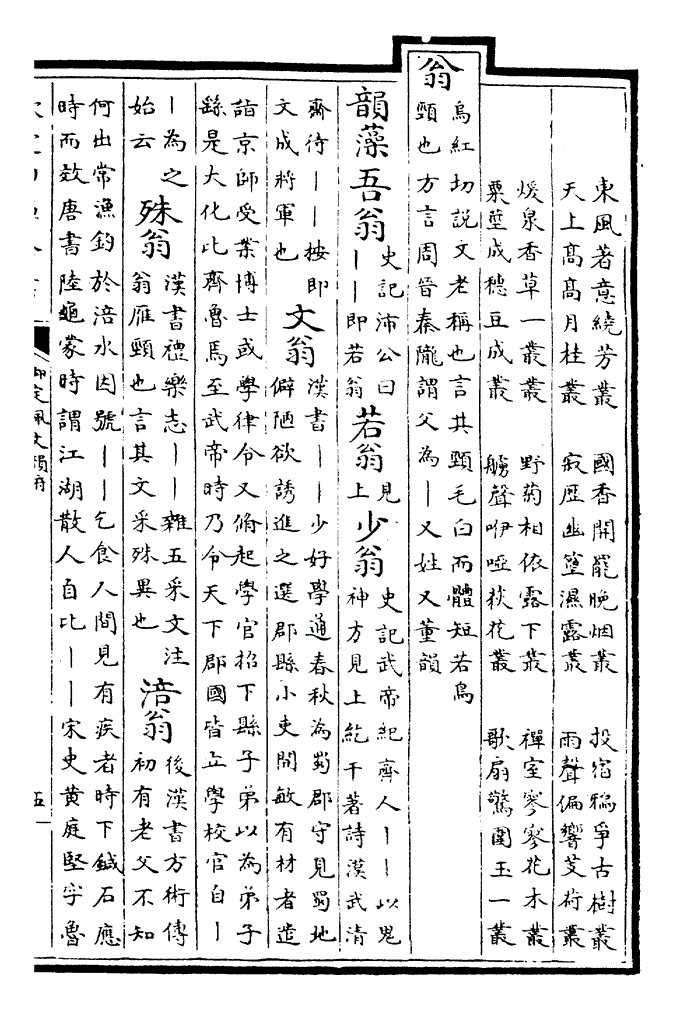 東風著意繞芳叢 國香開罷晚烟叢 投宿鴉爭古樹叢
天上高高月桂叢 寂歴幽篁濕露叢 雨聲偏響芰荷叢
煖泉香草一叢叢 野菊相依露下叢 禪室寥寥花木叢
粟壘成穗豆成叢 艣聲咿啞荻花叢 歌扇驚圍玉一叢
翁
烏紅切説文老稱也言其頸毛白而體短若烏
頸也方言周晉秦隴謂父為丨又姓又董韻
韻藻吾翁
史記沛公曰
丨丨即若翁
若翁
見
上
少翁
史記武帝紀齊人丨丨以鬼
神方見上紇干著詩漢武清
齋待丨丨按即
文成將軍也
文翁
漢書丨丨少好學通春秋為蜀郡守見蜀地
僻陋欲誘進之選郡縣小吏開敏有材者遣
詣京師受業博士或學律令又脩起學官招下縣子弟以為弟子
繇是大化比齊魯焉至武帝時乃令天下郡國皆立學校官自丨
丨為之
始云
殊翁
漢書禮樂志丨丨雜五采文注
翁雁頸也言其文采殊異也
涪翁
後漢書方術傳
初有老父不知
何出常漁釣於涪水因號丨丨乞食人間見有疾者時下鍼石應
時而效唐書陸龜蒙時謂江湖散人自比丨丨宋史黄庭堅字魯
御定佩文韻府
五